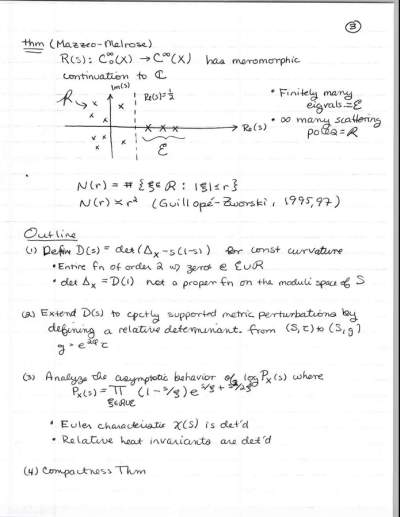 ③
Thm (Mazzeo-Melrose)
R(s): C₀^∞(X) → C^∞(X) has meromorphic
continuation to ℂ
Im(s)
R
Re(s)=½
Re(s)
ℰ
• Finitely many
eigvals = ℰ
• ∞ many scattering
poles = R
N(r) = # {ξ∈R : |ξ|≤r}
N(r) ≍ r² (Guillopé-Zworski, 1995, 97)
Outline
(1) Define D(s) = det(Δ_X - s(1-s)) for const curvature
• Entire fn of order 2 w/ zeros ∈ ℰ∪R
• det Δ_X = D(1) not a proper fn on the moduli space of S
(2) Extend D(s) to cpctly supported metric perturbations by
defining a relative determinant from (S, τ) to (S, g)
g = e^{2φ} τ
(3) Analyze the asymptotic behavior of log P_X(s) where
P_X(s) = Π (1 - s/ξ) e^{s/ξ + s²/2ξ}
ξ∈R∪ℰ
• Euler characteristic χ(S) is det'd
• Relative heat invariants are det'd
(4) Compactness Thm